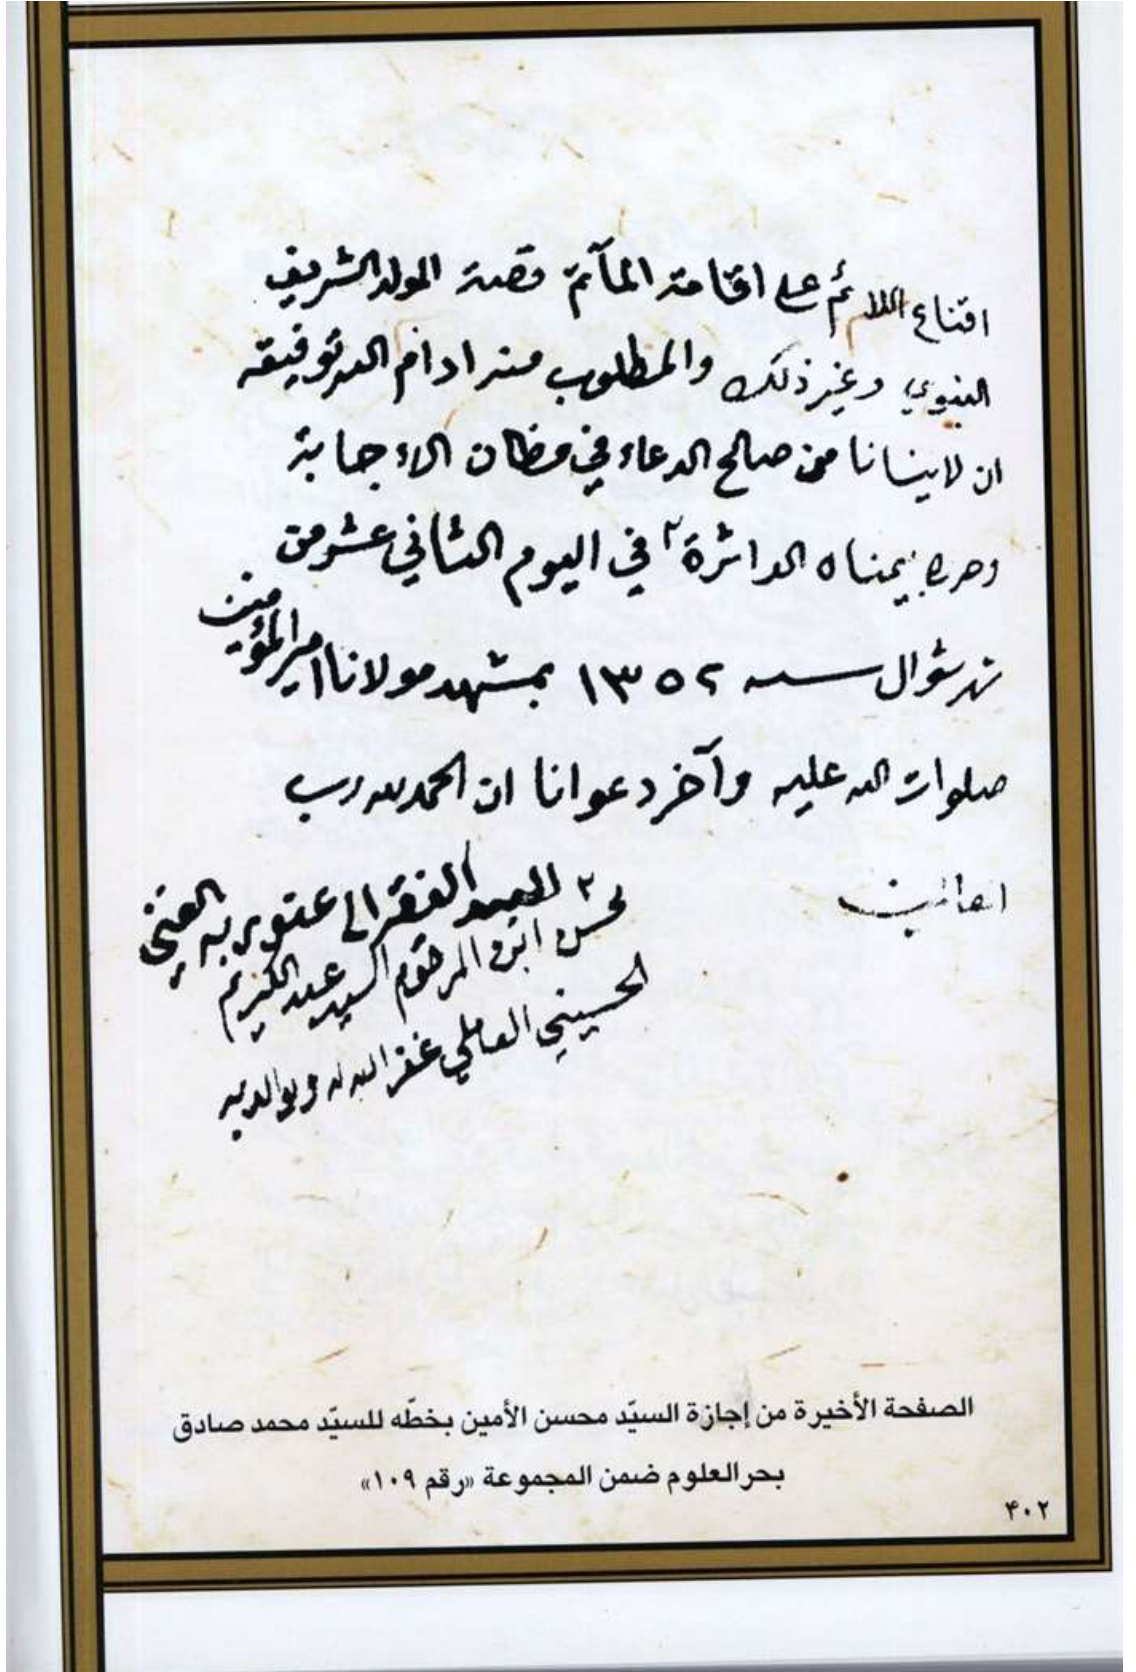 اقناع اللائم على اقامة المآتم قصة المولد الشريف
النبوي وغير ذلك والمطلوب منه ادام الله توفيقه
ان لا ينسانا من صالح الدعاء في مظان الاجابة
وحرره بيمناه الداثرة في اليوم الثاني عشر من
شهر شوال سنه ١٣٥٢ بمشهد مولانا امير المؤمنين
صلوات الله عليه وآخر دعوانا ان الحمد لله رب
العالمين
العبد الفقير الى عفو ربه الغني
محسن ابن المرحوم السيد عبد الكريم
الحسيني العاملي غفر الله له ولوالديه
الصفحة الأخيرة من إجازة السيّد محسن الأمين بخطّه للسيّد محمد صادق
بحر العلوم ضمن المجموعة «رقم ١٠٩»
۴٠٢